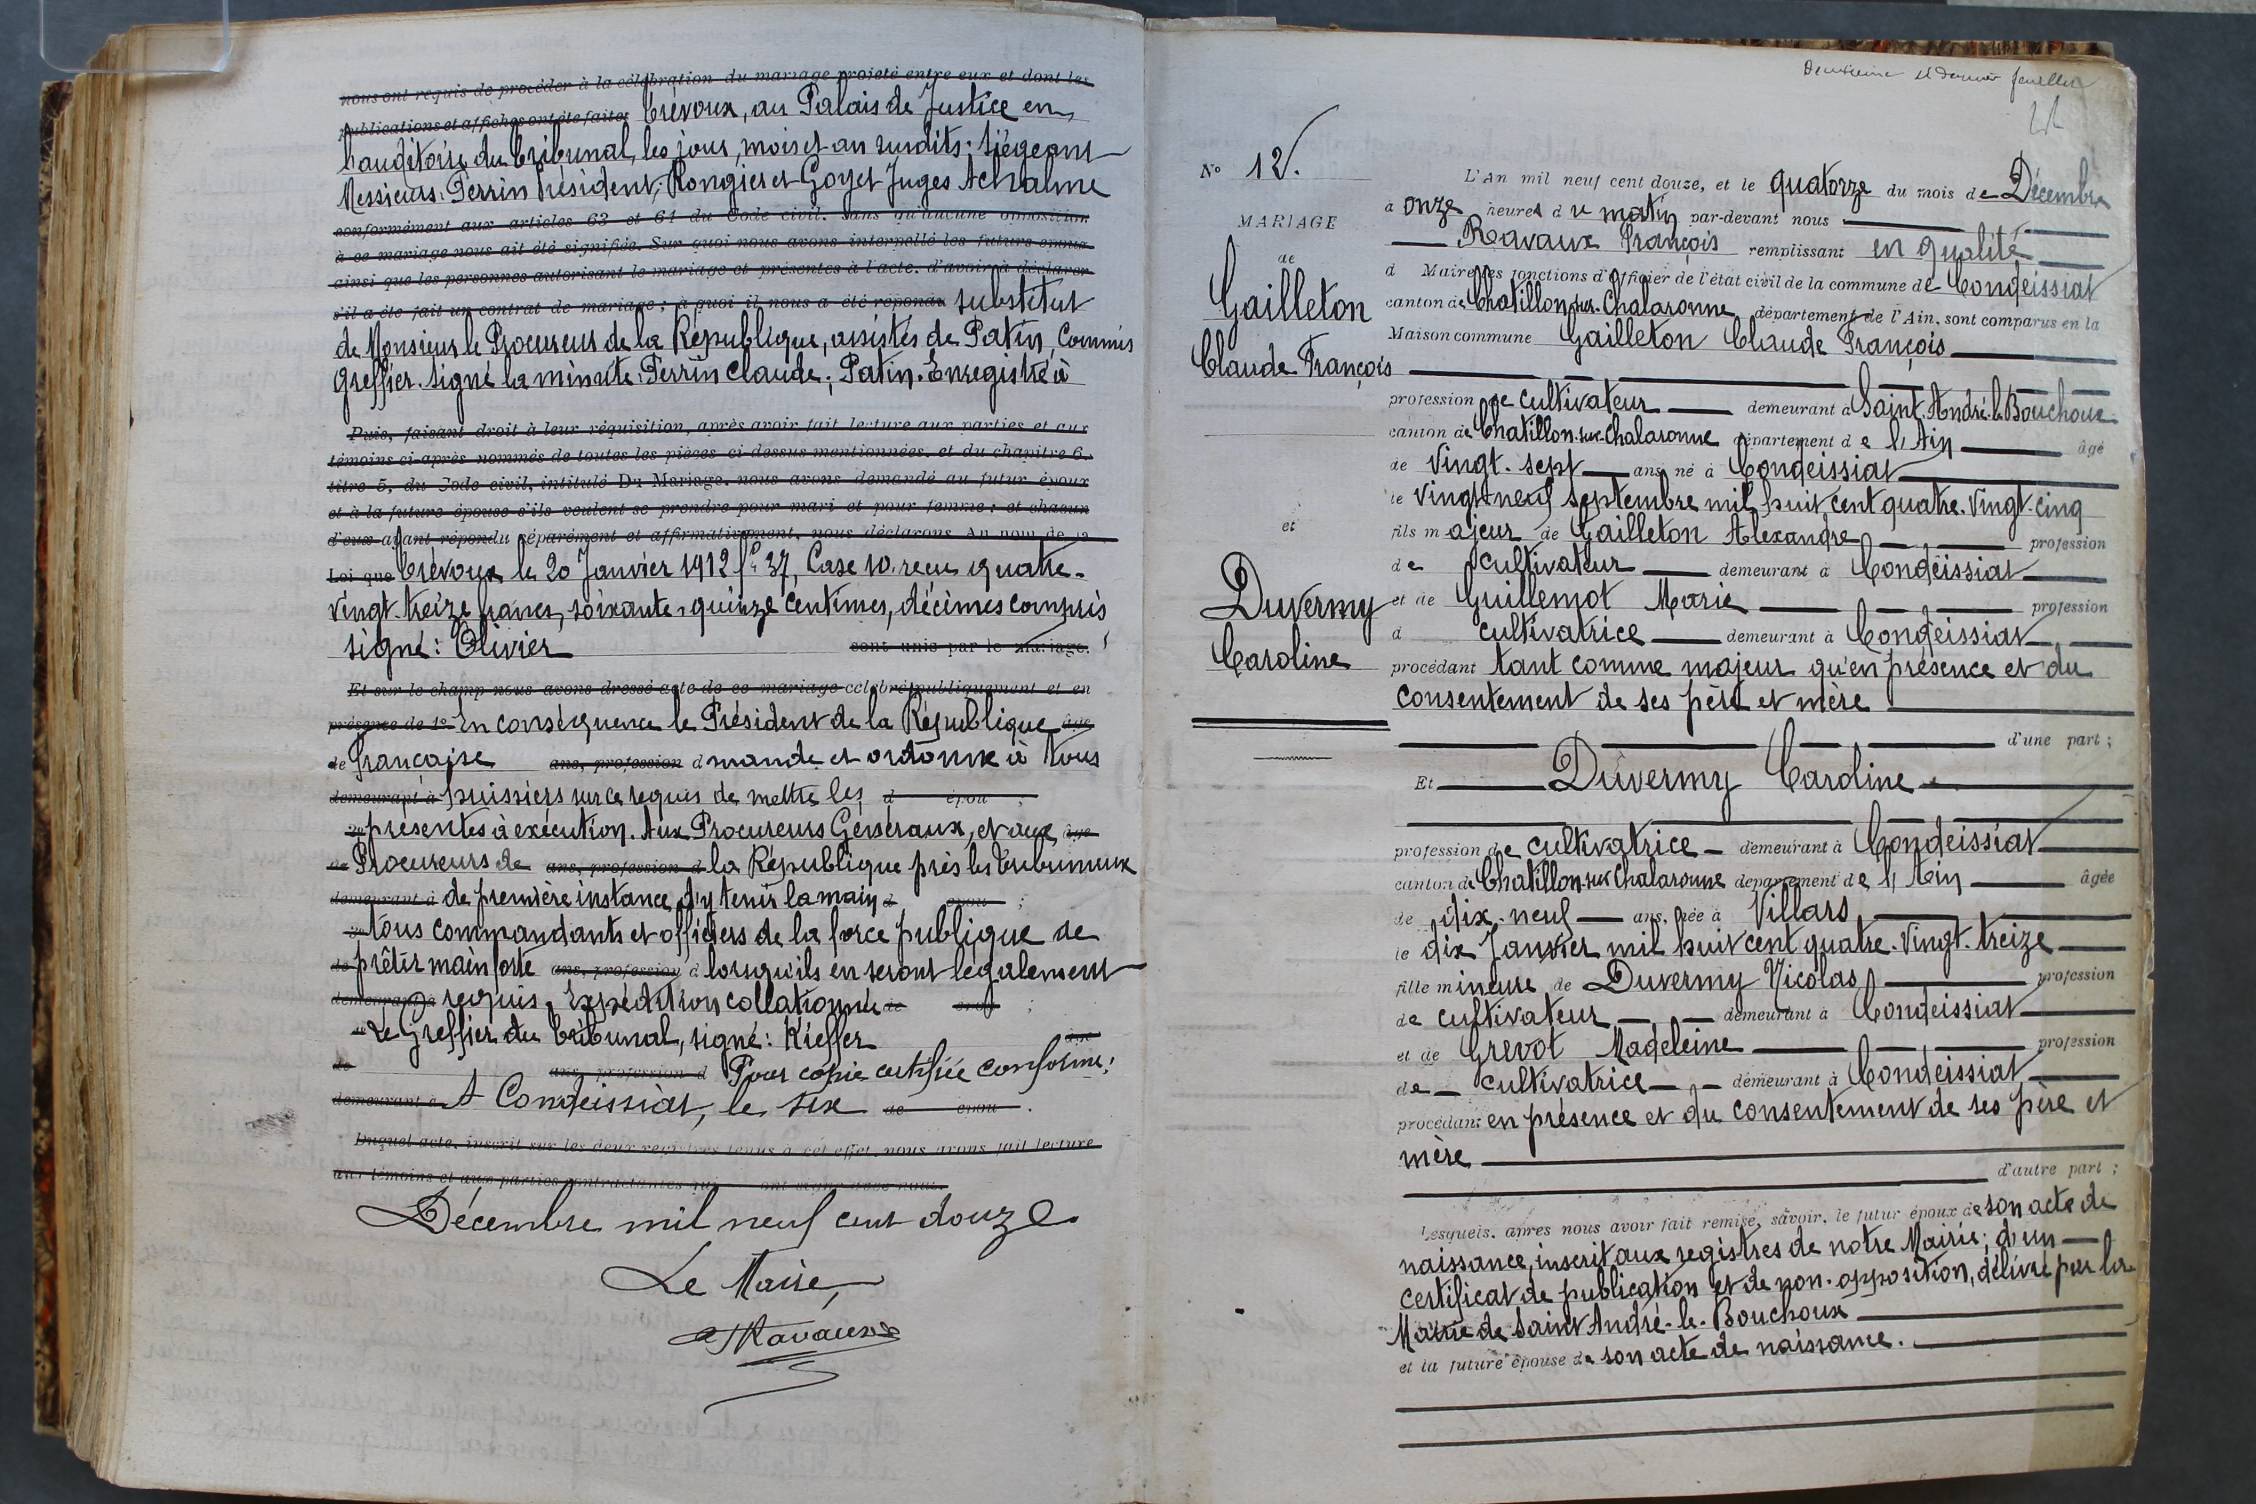 nous ont requis de procéder à la célébration du mariage projeté entre eux et dont les
publications et affiches ont été faites Trévoux, au Palais de Justice en
l'auditoire du tribunal, les jour, mois et an susdits. Siégeant
Messieurs: Perrin Président, Rongier et Goyet Juges Achalme
conformément aux articles 63 et 64 du Code civil. sans qu'aucune opposition
à ce mariage nous ait été signifiée. Sur quoi nous avons interpellé les futurs époux
ainsi que les personnes autorisant le mariage et présentes à l'acte. d'avoir à déclarer
s'il a été fait un contrat de mariage ; à quoi il nous a été répondu substitut
de Monsieur le Procureur de la République, assistés de Patin, Commis
greffier. Signé la minute: Perrin Claude; Patin. Enregistré à
Puis, faisant droit à leur réquisition, après avoir fait lecture aux parties et aux
témoins ci-après nommés de toutes les pièces ci-dessus mentionnées. et du chapitre 6.
titre 5, du Code civil, intitulé Du Mariage. nous avons demandé au futur époux
et à la future épouse s'ils veulent se prendre pour mari et pour femme ; et chacun
d'eux ayant répondu séparément et affirmativement, nous déclarons Au nom de la
Loi que Trévoux le 20 Janvier 1912 f° 37, Case 10. reçu quatre-
vingt-treize francs, soixante-quinze centimes, décimes compris
signé: Olivier sont unis par le mariage.
Et sur le champ nous avons dressé acte de ce mariage célébré publiquement et en
présence de 1° En conséquence le Président de la République âgé
de Française ans, profession d mande et ordonne à tous
demeurant à huissiers sur ce requis de mettre les d épou ;
2° présentes à exécution. Aux Procureurs Généraux, et aux âgé
de Procureurs de ans, profession d la République près les tribunaux
demeurant à de première instance d'y tenir la main d épou ;
3° tous commandants et officiers de la force publique de
de prêter main forte ans, profession d lorsqu'ils en seront légalement
demeurant à requis. Expédition collationnée de épou ;
4° Le Greffier du tribunal, signé: Kieffer âgé
de ans, profession d Pour copie certifiée conforme:
demeurant à A Condeissiat, le six de épou .
Duquel acte. inscrit sur les deux registres tenus à cet effet. nous avons fait lecture
aux témoins et aux parties contractantes qui ont signé avec nous.
Décembre mil neuf cent douze.
Le Maire,
Ravaux
Deuxième et dernier feuillet
N° 12.
MARIAGE
de
Gailleton
Claude François
et
Duvermy
Caroline
L'An mil neuf cent douze, et le quatorze du mois de Décembre
à onze heures du matin par-devant nous
Ravaux François remplissant en qualité
d Maire les fonctions d'Officier de l'état civil de la commune de Condeissiat
canton de Chatillon-sur-Chalaronne département de l'Ain, sont comparus en la
Maison commune Gailleton Claude François
profession de cultivateur demeurant à Saint-André-le-Bouchoux
canton de Chatillon-sur-Chalaronne département de l'Ain âgé
de vingt-sept ans, né à Condeissiat
le vingt-neuf septembre mil huit cent quatre-vingt-cinq
fils majeur de Gailleton Alexandre profession
de cultivateur demeurant à Condeissiat
et de Guillemot Marie profession
d cultivatrice demeurant à Condeissiat
procédant tant comme majeur qu'en présence et du
consentement de ses père et mère
d'une part ;
Et Duvermy Caroline
profession de cultivatrice demeurant à Condeissiat
canton de Chatillon-sur-Chalaronne département de l'Ain âgée
de dix-neuf ans, née à Villars
le dix Janvier mil huit cent quatre-vingt-treize
fille mineure de Duvermy Nicolas profession
de cultivateur demeurant à Condeissiat
et de Grevot Madeleine profession
de cultivatrice demeurant à Condeissiat
procédant en présence et du consentement de ses père et
mère
d'autre part ;
Lesquels, après nous avoir fait remise, savoir, le futur époux de son acte de
naissance, inscrit aux registres de notre Mairie; d'un
certificat de publication et de non-opposition, délivré par la
Mairie de Saint-André-le-Bouchoux
et la future épouse de son acte de naissance.